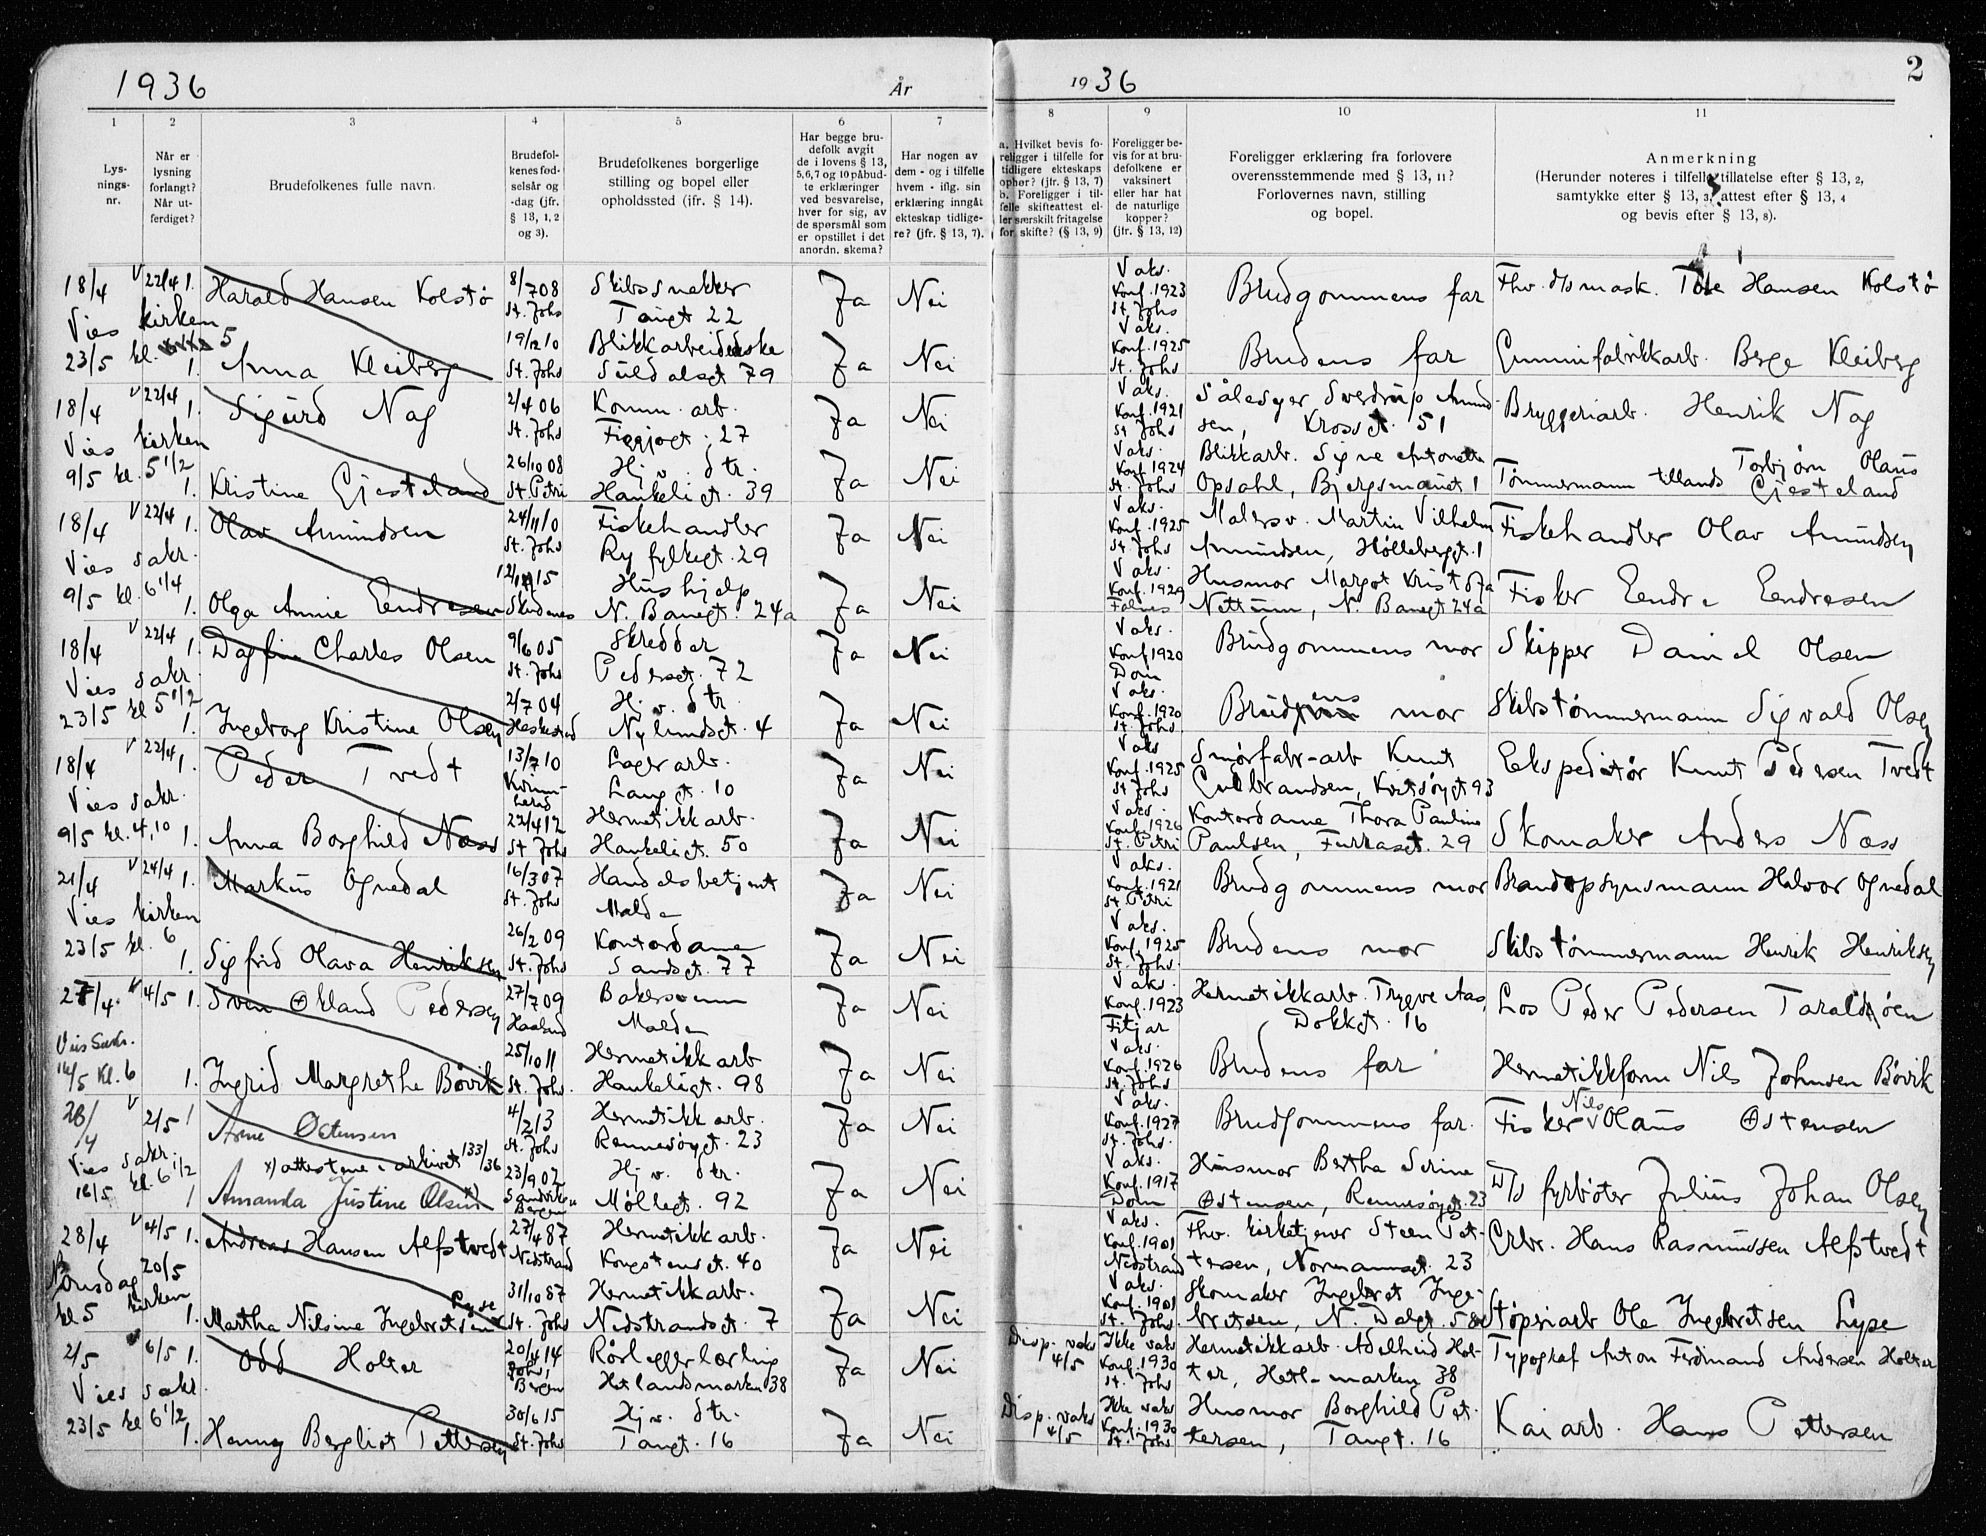 1936 År 1936 2
1 2 3 4 5 6 7 8 9 10 11
Lys-
nings-
nr.
Når er
lysning
forlangt?
Når ut-
ferdiget?
Brudefolkenes fulle navn.
Brudefol-
kenes fød-
selsår og
-dag (jfr.
§ 13, 1, 2
og 3).
Brudefolkenes borgerlige
stilling og bopel eller
opholdssted (ifr. § 14).
Har begge bru-
defolk avgit
de i lovens § 13,
5,6,7 og 10 påbud-
te erklæringer
ved besvarelse,
hver for sig, av
de spørsmål som
er opstillet i det
anordn. skema?
Har nogen av
dem - og i tilfelle
hvem - iflg. sin
erklæring inngåt
ekteskap tidlige-
re? (jfr. § 13, 7).
a. Hvilket bevis fo-
religger i tilfelle for
tidligere ekteskaps
ophør? (jfr. § 13, 7)
b. Foreligger i til-
felle skifteattest el-
ler særskilt fritagelse
for skifte? (§ 13, 9)
Foreligger be-
vis for at bru-
defolkene er
vaksinert
eller har hat
de naturlige
kopper?
(jfr. § 13, 12)
Foreligger erklæring fra forlovere
overensstemmende med § 13, 11?
Forlovernes navn, stilling
og bopel.
Anmerkning
(Herunder noteres i tilfelle tillatelse efter § 13, 2,
samtykke efter § 13, 3, attest efter § 13, 4
og bevis efter § 13, 8).
18/4 22/4 1. Harald Hansen Kolstø 8/7 08 St. Johs Skibssnekker Tangt 22 Ja Nei Vaks. Konf. 1923 St. Johs Brudgommens far Fhv. d/s mask. Tole Hansen Kolstø
Vies kirken
23/5 kl. 5 1. Anna Kleiberg 19/2 10 St. Johs Blikkarbeiderske Suldalsgt 79 Ja Nei Vaks. Konf. 1925 St. Johs Brudens far Gummifabrikkarb. Berge Kleiberg
18/4 22/4 1. Sigurd Nag 2/4 06 St. Johs Komm. arb. Figgjogt. 27 Ja Nei Vaks. Konf. 1921 St Johs Sålesyer Sverdrup Amund-
sen, Krossgt. 51 Bryggeriarb. Henrik Nag
Vies kirken
9/5 kl. 5 1/2 1. Kristine Gjesteland 26/10 08 St. Petri Hj. v. dtr. Haukeligt. 39 Ja Nei Vaks. Konf. 1924 St. Johs Blikkarb. Signe Antonette
Opsahl, Bjergsmauet 1 Tømmermann Torbjørn Olaus Gjesteland
18/4 22/4 1. Olav Amundsen 24/11 10 St. Johs Fiskehandler Ryfylkegt. 29 Ja Nei Vaks. Konf. 1925 St. Johs Malersv. Martin Vilhelm
Amundsen, Hølleberggt. 1 Fiskehandler Olav Amundsen
Vies sakr.
9/5 kl. 6 1/4 1. Olga Annie Eendresen 15 Skudenes Hushjelp N. Banegt. 24a Ja Nei Vaks. Konf. 1929 Falnes Husmor Margot Kristofa
Nettum, N. Banegt 24a Fisker Eendre Eendresen
18/4 22/4 1. Dagfin Charles Olsen 9/6 05 St. Johs Skredder Pedersgt. 72 Ja Nei Vaks. Konf. 1920 Dom Brudgommens mor Skipper Daniel Olsen
Vies sakr.
23/5 kl 5 1/2 1. Ingeborg Kristine Olsen 2/7 04 Heskestad Hj. v. dtr. Nylundsgt. 4 Ja Nei Vaks. Konf. 1920 St. Johs. Brudens mor Skibstømmermann Sigvald Olsen
18/4 22/4 1. Peder Tvedt 13/7 10 Kvinn-
herad Lagerarb. Langgt. 10 Ja Nei Vaks Konf. 1925 St Johs Smørfabr-arb Knut
Gulbrandsen, Kvitsøygt 93 Ekspeditør Knut Pedersen Tvedt
Vies sakr.
9/5 kl. 4,10 1. Anna Borghild Næss 22/4 12 St Johs Hermetikkarb. Haukeligt. 50 Ja Nei Vaks. Konf. 1926 St. Petri Kontordame Thora Pauline
Paulsen, Furrasgt. 29 Skomaker Anders Næss
21/4 24/4 1. Markus Ognedal 16/3 07 St. Johs Handelsbetjent Malde Ja Nei Vaks. Konf. 1921 St. Petri Brudgommens mor Brandopsynsmann Halvor Ognedal
Vies kirken
23/5 kl. 6 1. Sigfrid Olava Henriksen 26/2 09 St. Johs Kontordame Sandsgt. 77 Ja Nei Vaks. Konf. 1925 St. Johs Brudens mor Skibstømmermann Henrik Henriksen
27/4. 4/5 1. Sven Økland Pedersen 27/7 09 Haaland Bakersvenn Malde Ja Nei Vaks. Konf. 1923 Fitjar Hermetikkarb. Trygve Aas,
Dokkgt. 16 Los Peder Pedersen Taraldsøen
Vies Sakr.
16/5 kl. 6 1. Ingrid Margrethe Bøvik 25/10 11 St. Johs. Hermetikkarb Haukeligt. 98 Ja Nei Vaks. Konf. 1926 St. Johs Brudens far Hermetikkform Nils Johnsen Bøvik
28/4 2/5 1 Arne Østensen 4/2 13 St. Johs Hermetikkarb. Rennesøygt. 23 Ja Nei Vaks. Konf. 1927 St. Johs. Brudgommens far. Fisker Nils Olaus Østensen
Vies sakr. x) attestene i arkivet 133/36
16/5 kl. 6 1/2 1 Amanda Justine Olsen x) 23/9 02 Sandviken Bergen Hj. v. dtr. Møllegt. 92 Ja Nei Vaks. Konf. 1917 Dom Husmor Bertha Serine
Østensen, Rennesøygt. 23 D/s fyrbøter Julius Johan Olsen
28/4 4/5 1. Andreas Hansen Alfstvedt 27/4 87 Nedstrand Hermetikkarb. Kongstensgt. 40 Ja Nei Vaks. Konf. 1901 Nedstrand Fhv. kirketjener Steen Pet-
tersen, Normannsgt. 23 Grbr. Hans Rasmussen Alfstvedt
Onsdag 20/5
kl 5 kirken 1. Martha Nilsine Ingebretsen Lyse 31/10 87 St. Johs Hermetikkarb. Nedstrandsgt. 7 Ja Nei Vaks. Konf. 1901 St. Johs Skomaker Ingebret Inge-
bretsen, N. Dalgt. 58 Støperiarb Ole Ingebretsen Lyse
2/5 6/5 1. Odd Holter 20/4 14 Johs, Bergen Rørleggerlærling Hetlandsmarken 38 Ja Nei Disp. vaks 4/5 Ikke vaks Konf. 1930 St. Johs Hermetikkarb. Adelheid Hol-
ter, Hetl-marken 38 Typograf Anton Ferdinand Andersen Holter
Vies sakr.
23/5 kl 6 1/2 1. Henny Bergliot Pettersen 30/6 15 St. Johs Hj. v. dtr. Tangt. 16 Ja Nei Disp. vaks 4/5 Ikke vaks Konf. 1930 St. Johs Husmor Borghild Pet-
tersen, Tangt. 16 Kaiarb. Hans Pettersen